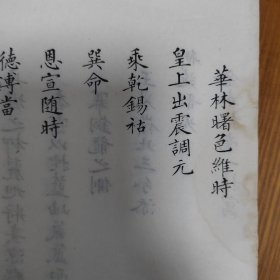 華林曙色維時
皇上出震調元
乘乾錫祜
巽命
恩宣隨時
德博當